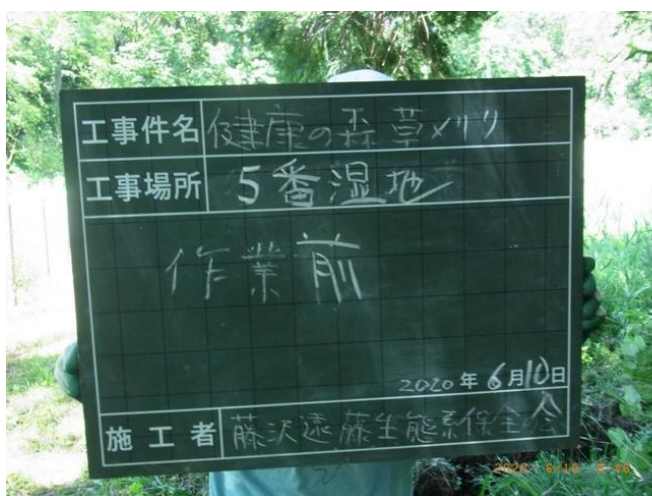 工事件名 健康の森草メリリ
工事場所 5番湿地
作業前
2020年6月10日
施工者 藤沢遠藤生態系保全の会
2020 6/10 8:46